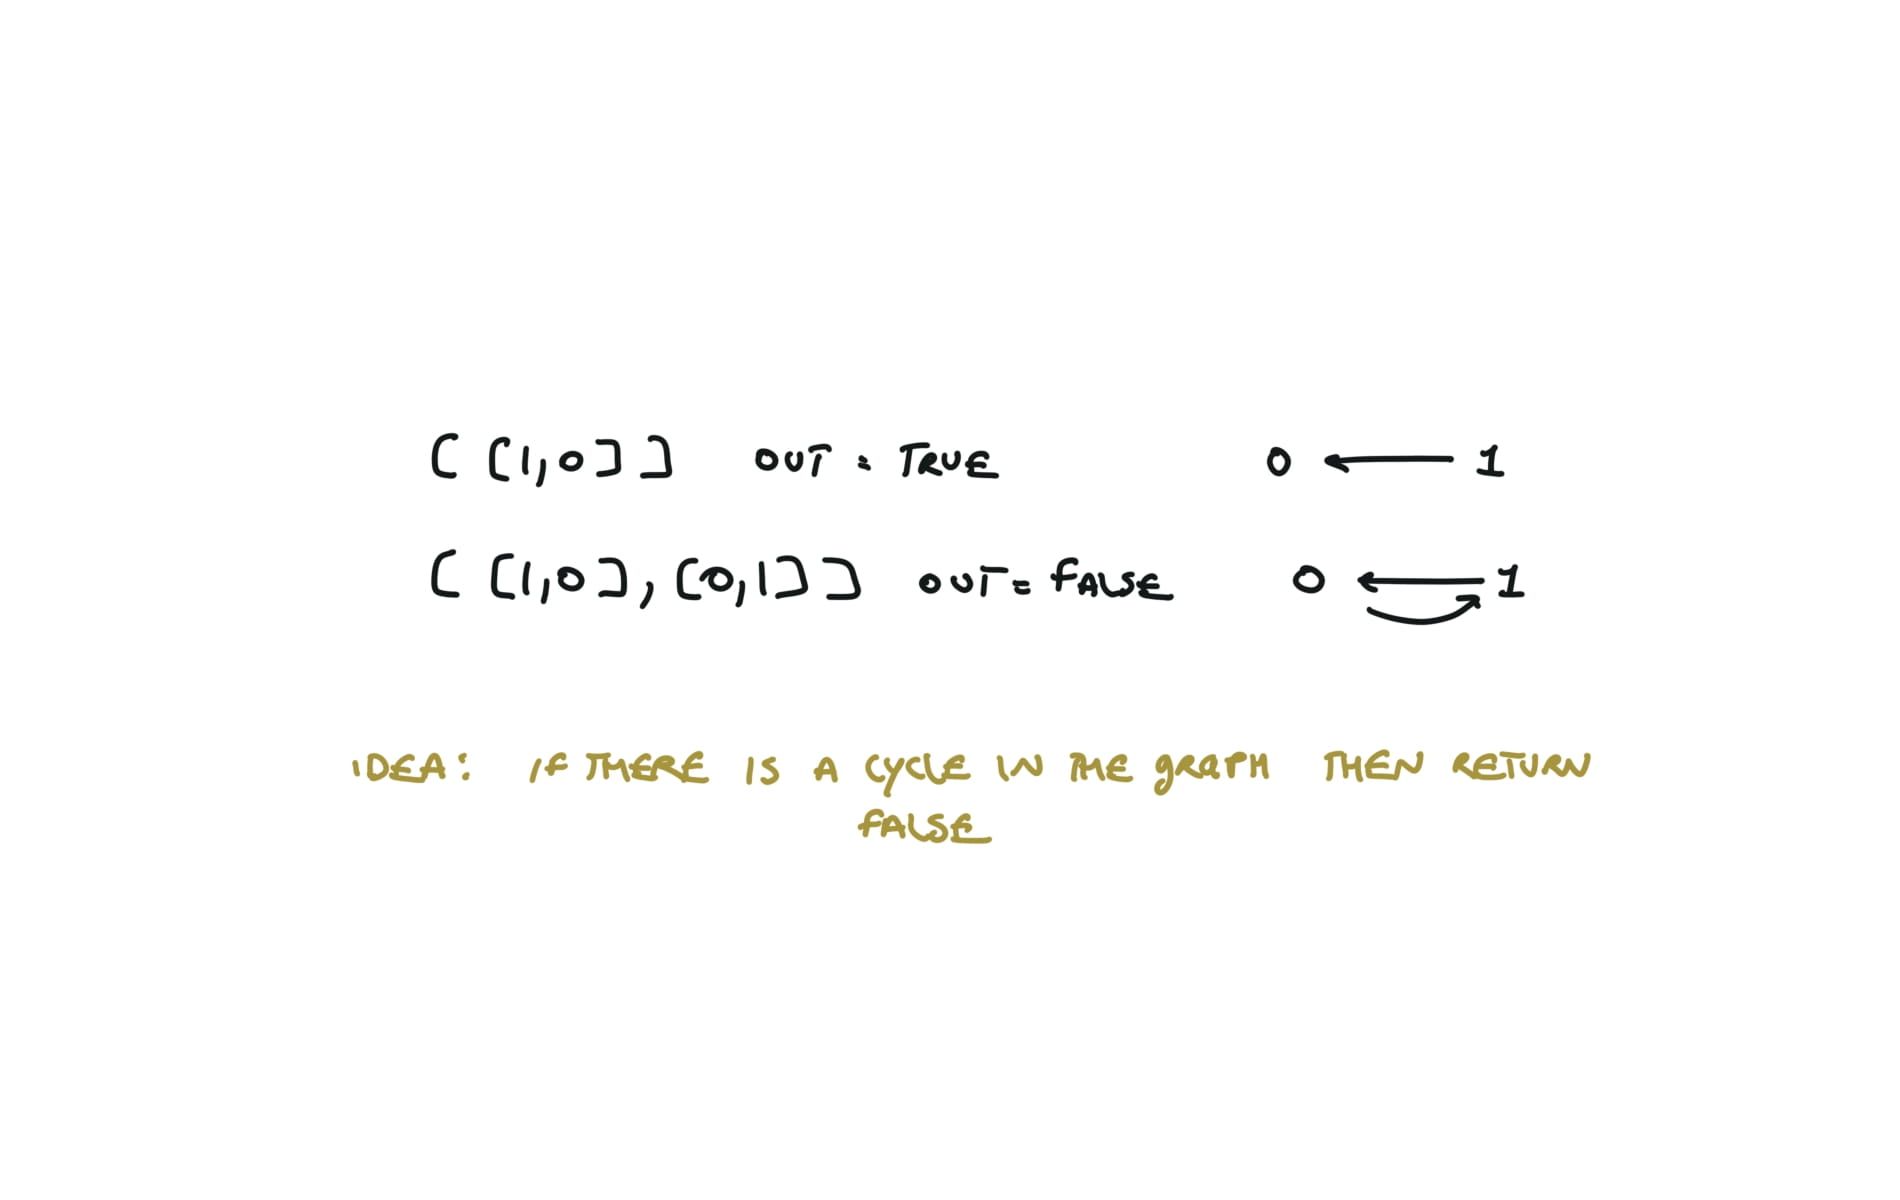 [[1,0]] OUT = TRUE 0 ← 1
[[1,0],[0,1]] OUT = FALSE 0 ← 1
IDEA: IF THERE IS A CYCLE IN THE GRAPH THEN RETURN
FALSE